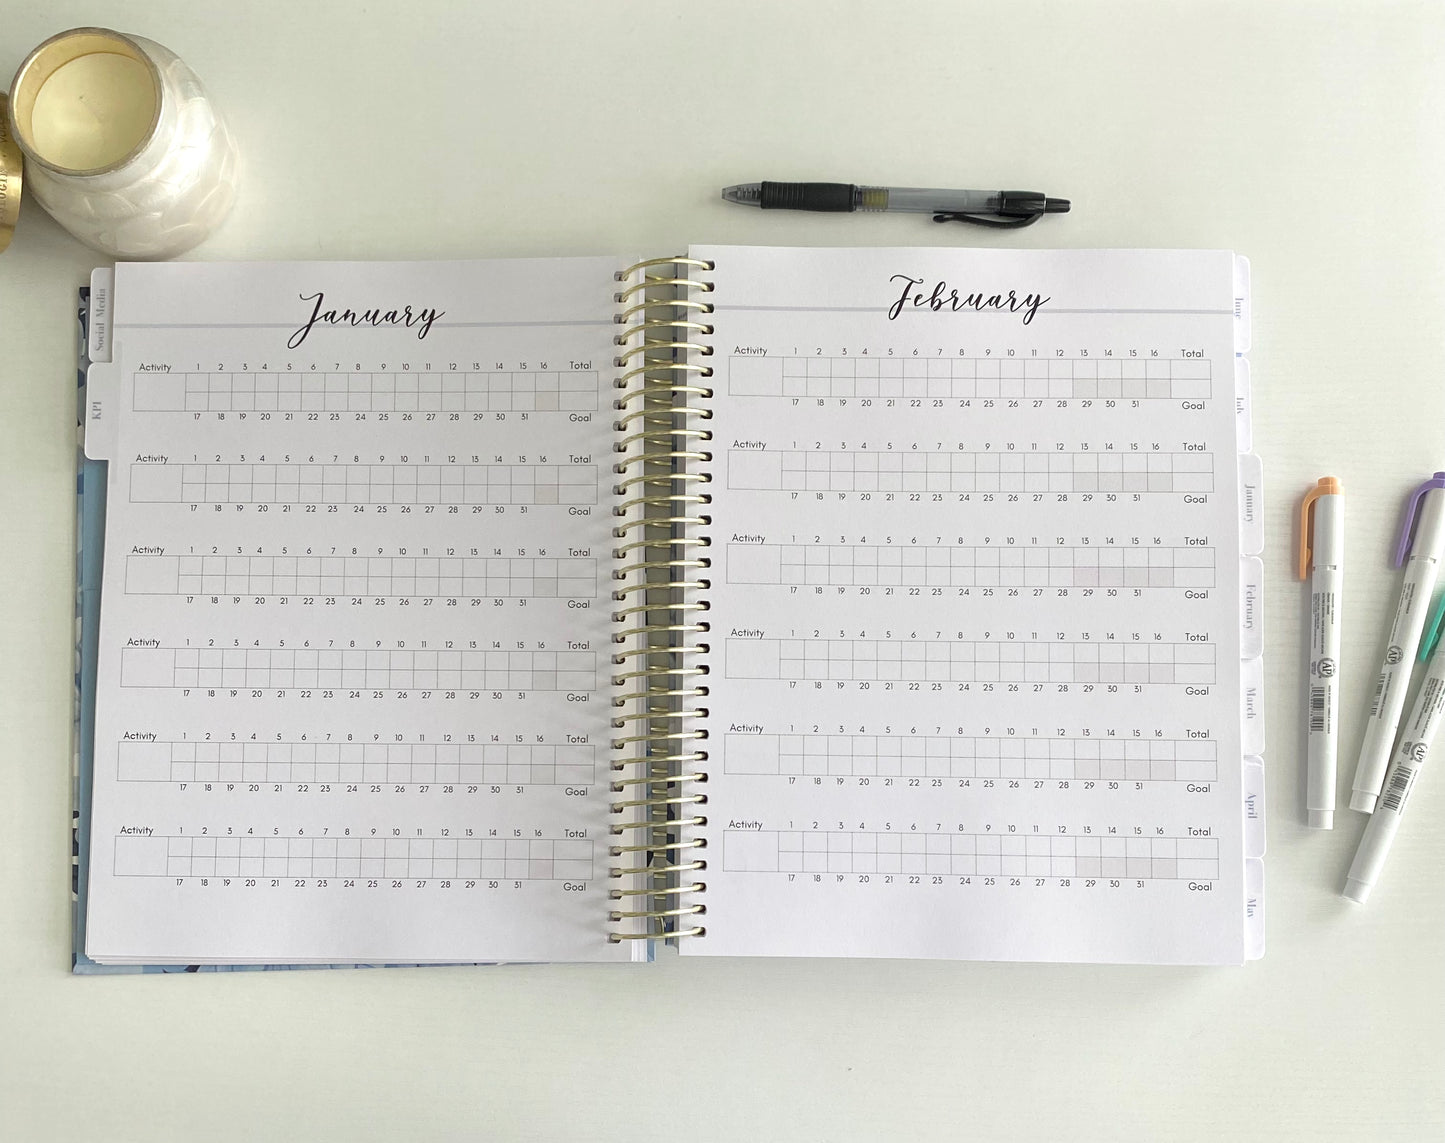 Social Media
KPI
January
Activity 1 2 3 4 5 6 7 8 9 10 11 12 13 14 15 16 Total
17 18 19 20 21 22 23 24 25 26 27 28 29 30 31 Goal
Activity 1 2 3 4 5 6 7 8 9 10 11 12 13 14 15 16 Total
17 18 19 20 21 22 23 24 25 26 27 28 29 30 31 Goal
Activity 1 2 3 4 5 6 7 8 9 10 11 12 13 14 15 16 Total
17 18 19 20 21 22 23 24 25 26 27 28 29 30 31 Goal
Activity 1 2 3 4 5 6 7 8 9 10 11 12 13 14 15 16 Total
17 18 19 20 21 22 23 24 25 26 27 28 29 30 31 Goal
Activity 1 2 3 4 5 6 7 8 9 10 11 12 13 14 15 16 Total
17 18 19 20 21 22 23 24 25 26 27 28 29 30 31 Goal
Activity 1 2 3 4 5 6 7 8 9 10 11 12 13 14 15 16 Total
17 18 19 20 21 22 23 24 25 26 27 28 29 30 31 Goal
February
Activity 1 2 3 4 5 6 7 8 9 10 11 12 13 14 15 16 Total
17 18 19 20 21 22 23 24 25 26 27 28 29 30 31 Goal
Activity 1 2 3 4 5 6 7 8 9 10 11 12 13 14 15 16 Total
17 18 19 20 21 22 23 24 25 26 27 28 29 30 31 Goal
Activity 1 2 3 4 5 6 7 8 9 10 11 12 13 14 15 16 Total
17 18 19 20 21 22 23 24 25 26 27 28 29 30 31 Goal
Activity 1 2 3 4 5 6 7 8 9 10 11 12 13 14 15 16 Total
17 18 19 20 21 22 23 24 25 26 27 28 29 30 31 Goal
Activity 1 2 3 4 5 6 7 8 9 10 11 12 13 14 15 16 Total
17 18 19 20 21 22 23 24 25 26 27 28 29 30 31 Goal
Activity 1 2 3 4 5 6 7 8 9 10 11 12 13 14 15 16 Total
17 18 19 20 21 22 23 24 25 26 27 28 29 30 31 Goal
June
July
January
February
March
April
May
AP
AP
AP